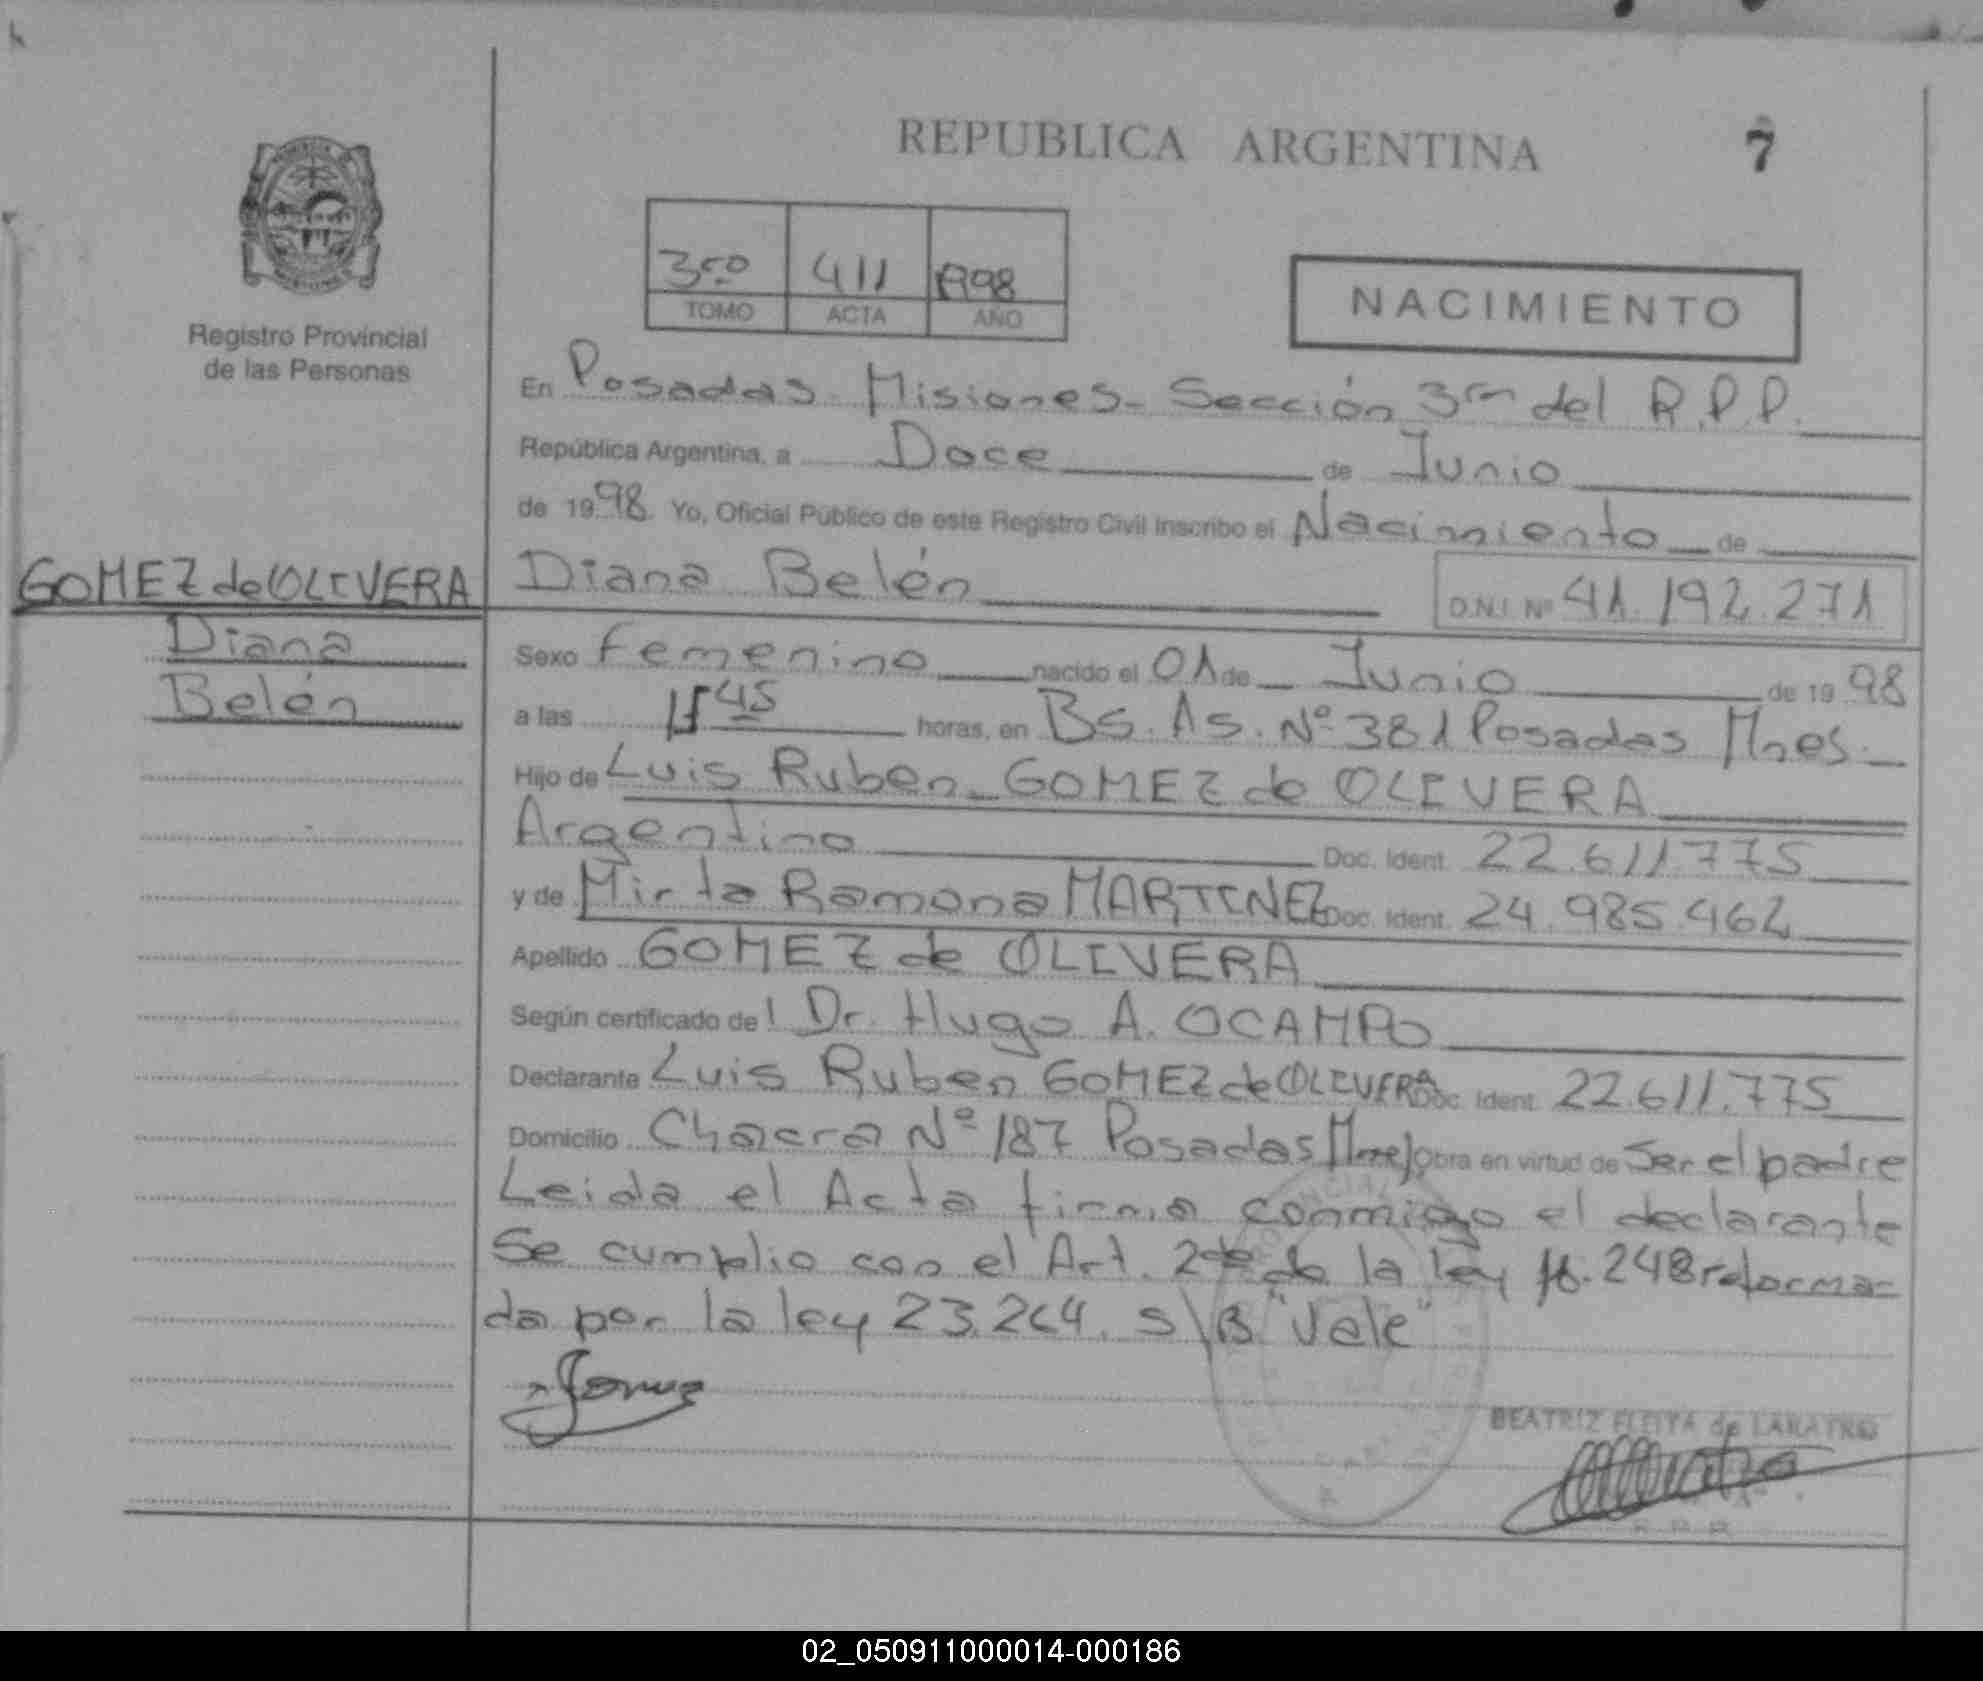 REPUBLICA ARGENTINA 7
3ro 411 1998
TOMO ACTA AÑO
NACIMIENTO
Registro Provincial
de las Personas
En Posadas Misiones - Sección 3ra del R.P.P.
República Argentina, a Doce de Junio
de 1998 Yo, Oficial Público de este Registro Civil inscribo el Nacimiento de
GOMEZ de OLIVERA
Diana
Belén
Diana Belén D.N.I. Nº 41.192.271
Sexo Femenino nacido el 01 de Junio de 1998
a las 45 horas, en Bs. As. Nº 381 Posadas Mnes.
Hijo de Luis Ruben GOMEZ de OLIVERA
Argentino Doc. Ident. 22.611.775
y de Mirta Ramona MARTINEZ Doc. Ident. 24.985.462
Apellido GOMEZ de OLIVERA
Según certificado del Dr. Hugo A. OCAMPO
Declarante Luis Ruben GOMEZ de OLIVERA Doc. Ident. 22.611.775
Domicilio Chacra Nº 187 Posadas Mnes Obra en virtud de Ser el padre
Leida el Acta firma conmigo el declarante
Se cumplio con el Art. 2do de la ley 18.248 reforma-
da por la ley 23.264. s/B "Vale"
BEATRIZ FLEITA de LARATRO
R.P.P.
02_050911000014-000186